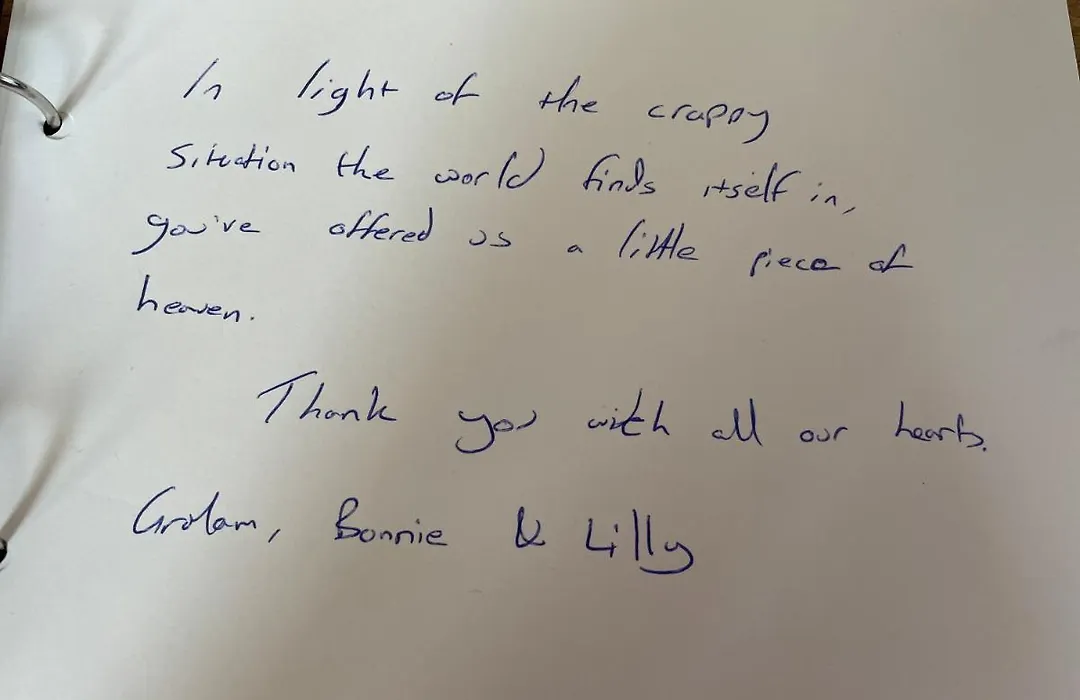 In light of the crappy
situation the world finds itself in,
you've offered us a little piece of
heaven.
Thank you with all our hearts.
Graham, Bonnie & Lilly